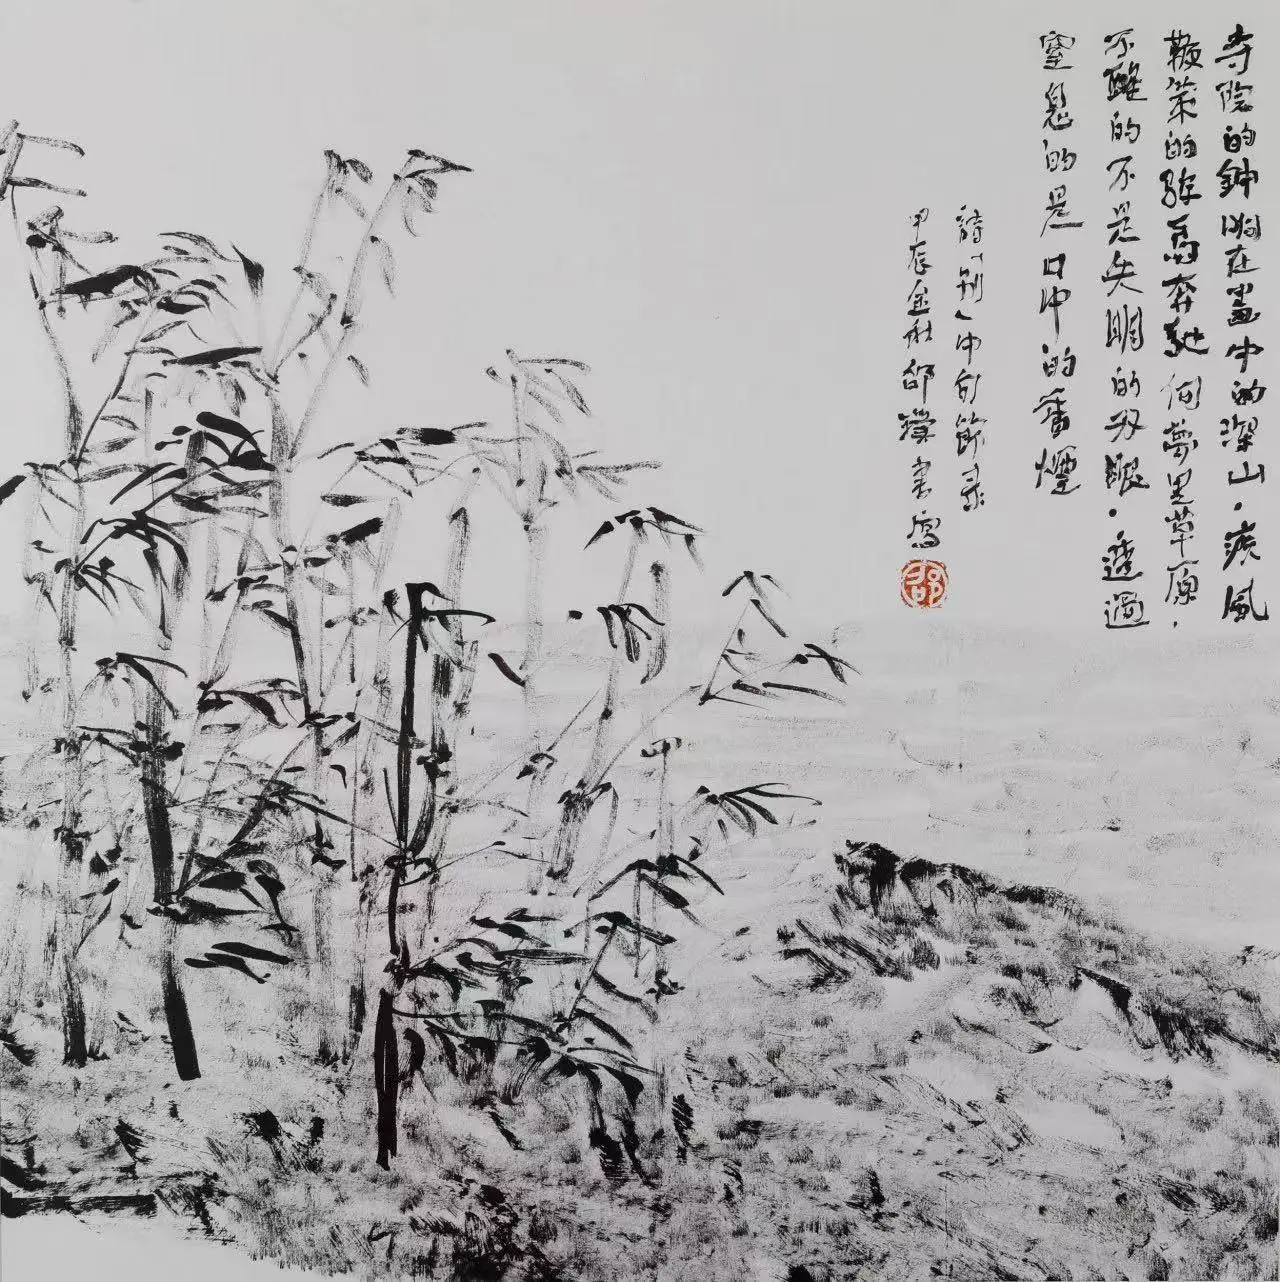 寺院的鐘响在畫中的深山·疾風
鞭策的骏馬奔馳向夢里草原·
不醒的不是失明的双眼·透過
窒息的是口中的香煙
詩「别」中句節录
甲辰金秋邵璞書寫
邵